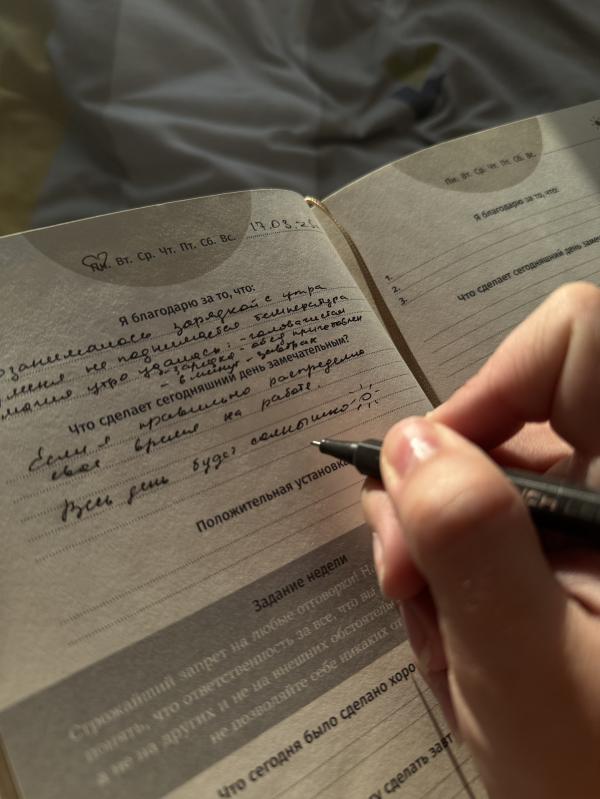 Пн. Вт. Ср. Чт. Пт. Сб. Вс. 17.03.
Я благодарю за то, что:
занималась зарядкой с утра
меня не поднимается температура
утро удалось: - голова чистая
- зарядка - обед приготовлен
- завтрак
Что сделает сегодняшний день замечательным?
Если я правильно распределю
свое время на работе.
Весь день будет солнышко
Положительная установка
Задание недели
Строжайший запрет на любые отговорки!
понять, что ответственность за все, что вы
а не на других и не на внешних обстоятельс
не позволяйте себе никаких от
Что сегодня было сделано хоро
сделать завт
Пн. Вт. Ср. Чт. Пт. Сб. Вс.
Я благодарю за то, что:
1.
2.
3.
Что сегодняшний день заме